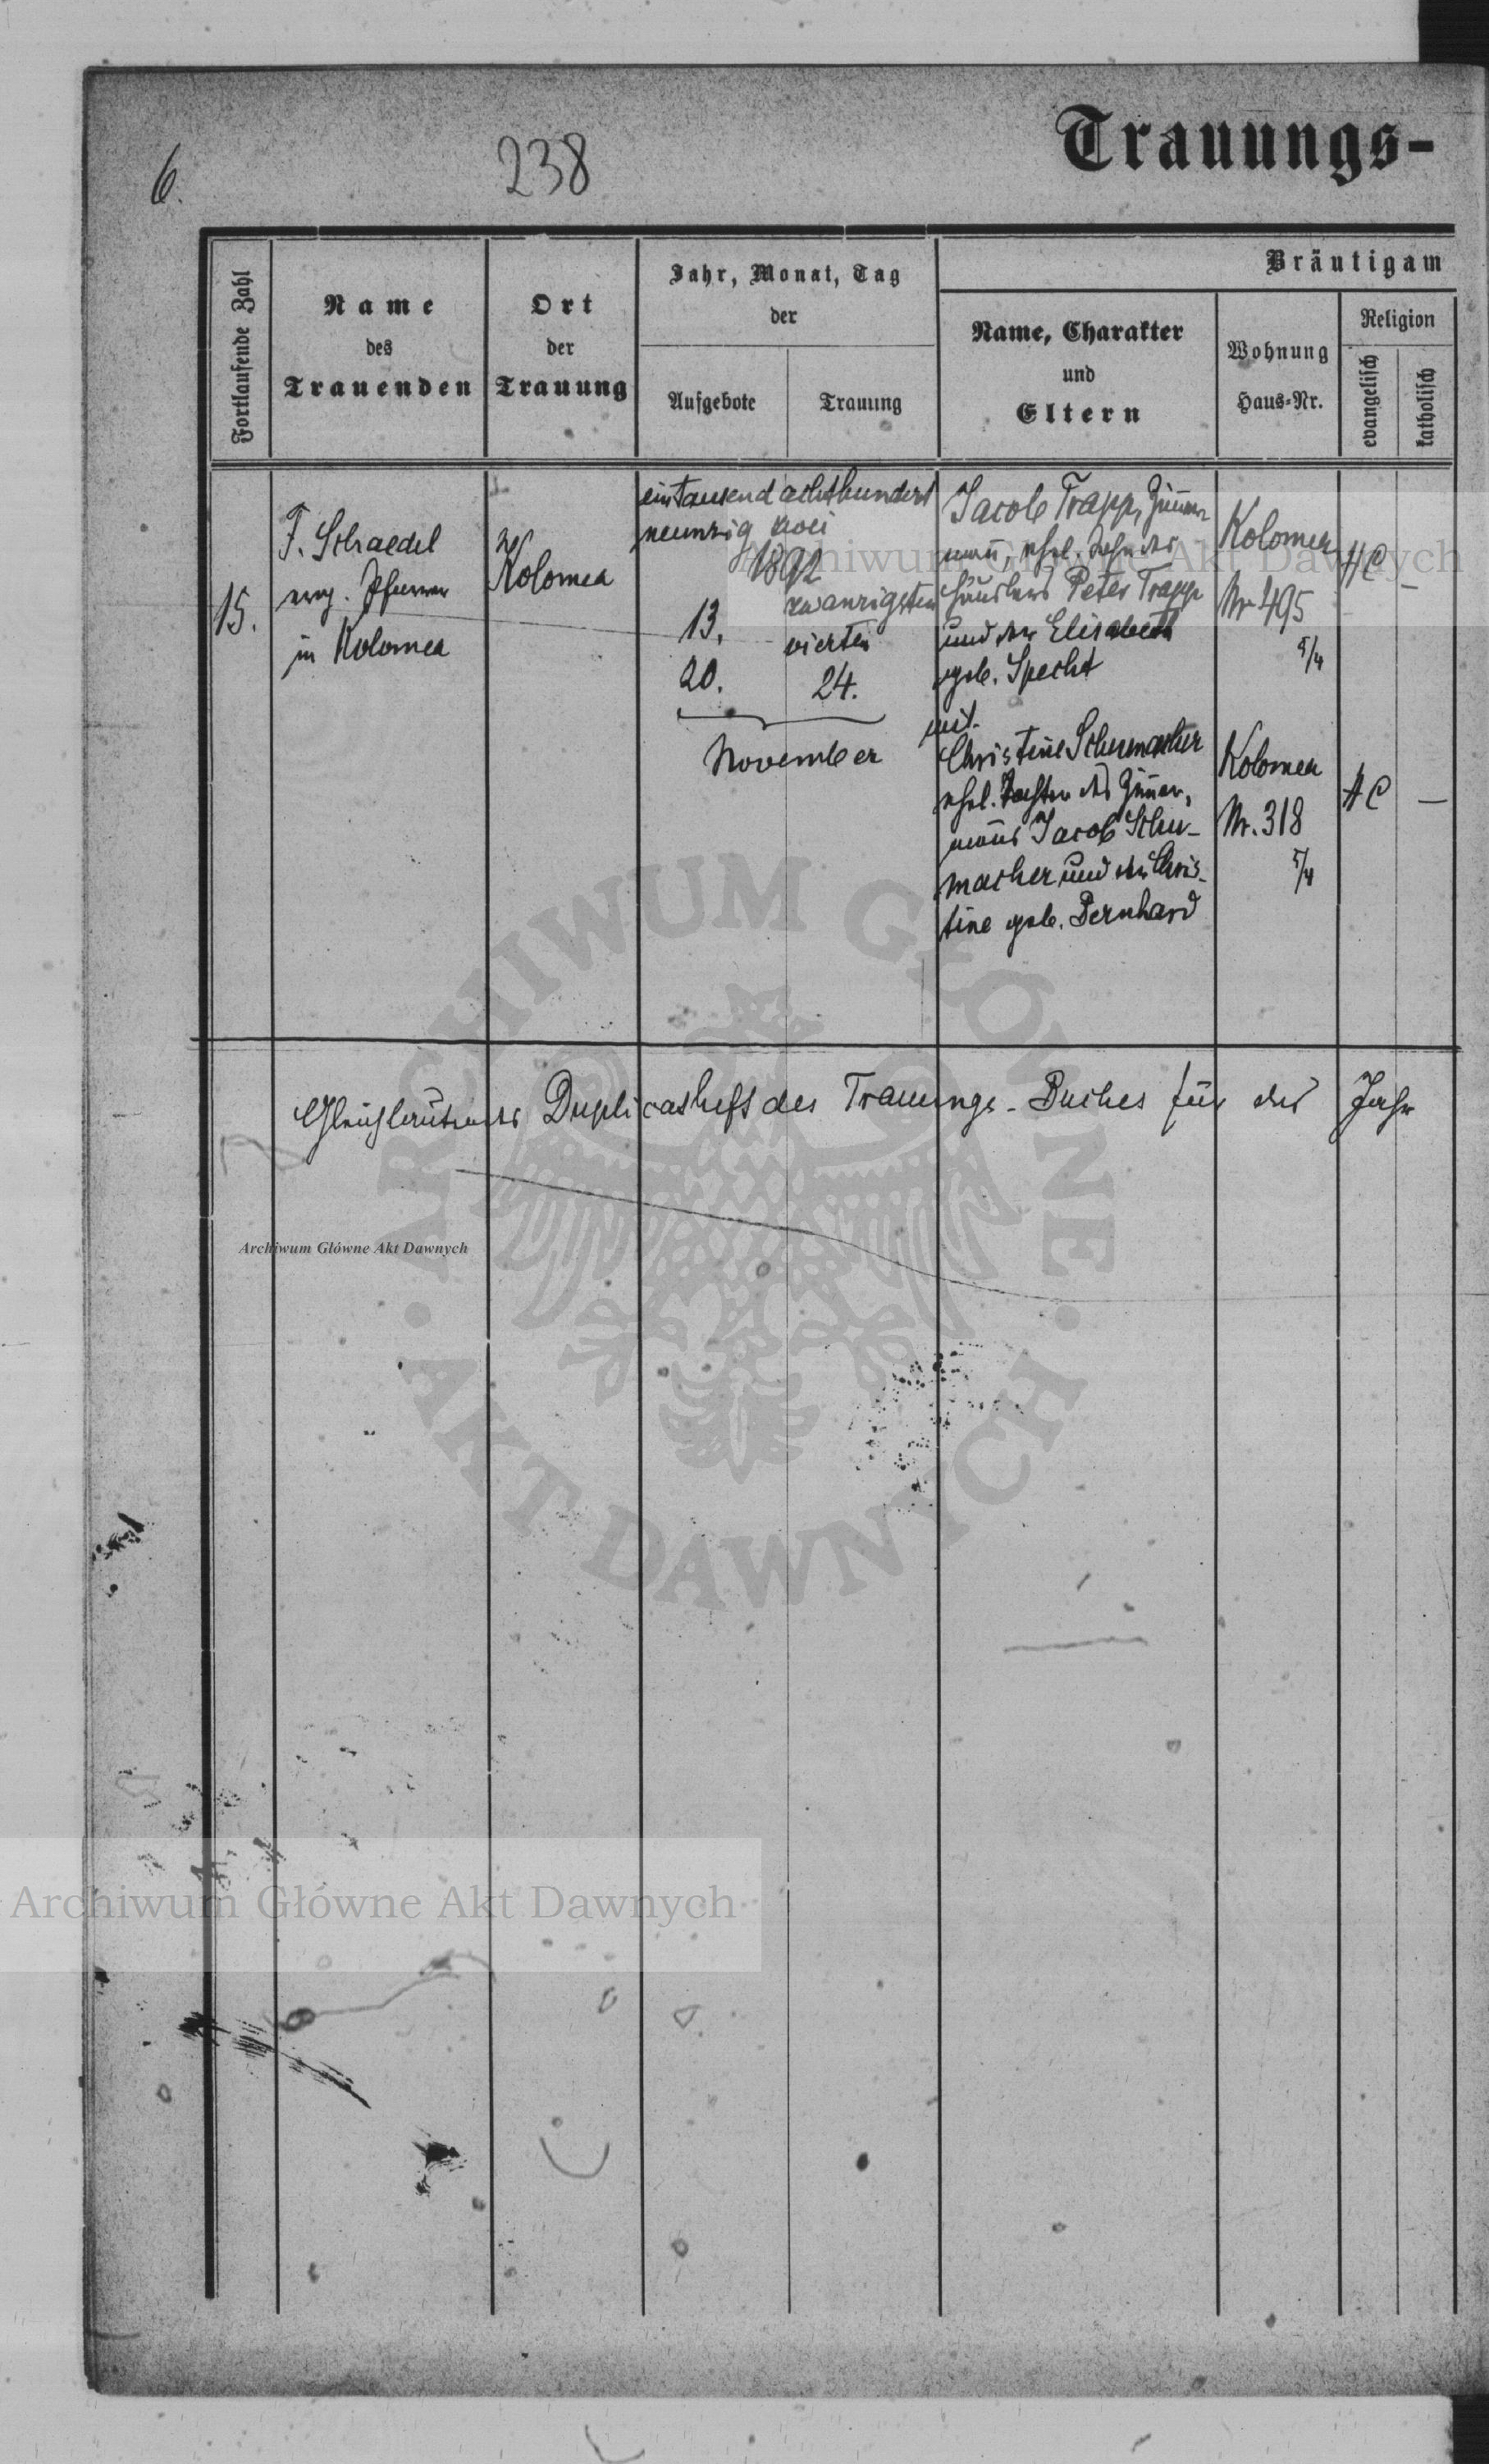 6.
238
Trauungs-
Fortlaufende Zahl
Name
des
Trauenden
Ort
der
Trauung
Jahr, Monat, Tag
der
Aufgebote
Trauung
Bräutigam
Name, Charakter
und
Eltern
Wohnung
Haus-Nr.
Religion
evangelisch
katholisch
15.
F. Schaedel
evg. Pfarrer
in Kolomea
zu
Kolomea
eintausend achthundert
neunzig zwei
1892
13.
20.
zwanzigsten
vierten
24.
November
Jacob Trapp, Zimmer
mann, ehel. Sohn des
Häuslers Peter Trapp
und der Elisabeth
geb. Specht
mit
Christine Schumacher
ehel. Tochter des Zimmer,
manns Jacob Schu-
macher und der Chris-
tine geb. Bernhard
Kolomea
Nr 495
5/4
AC
-
Kolomea
Nr. 318
5/4
AC
-
Gleichlautendes Duplicatheft des Trauungs-Buches für das Jahr
Archiwum Główne Akt Dawnych
Archiwum Główne Akt Dawnych
ARCHIWUM GŁÓWNE
AKT DAWNYCH
Archiwum Główne Akt Dawnych